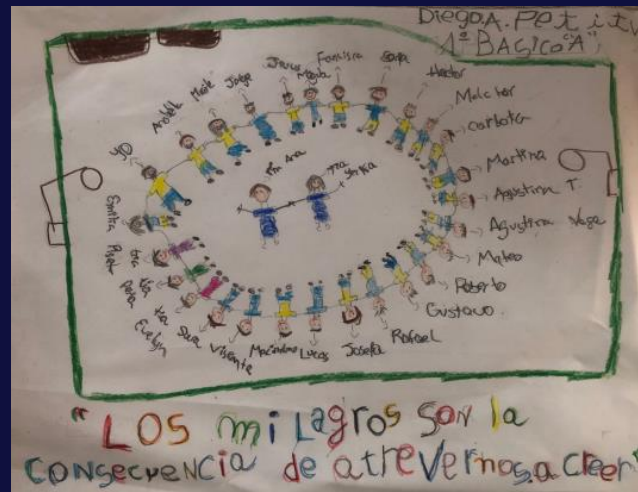 Diego.A. Petit V
1º BASICO "A"
yo
Arelí
Maite
Jorge
Jesus
Magda
Francisca
Sofia
Hector
Melchor
carlota
Martina
Agustina T.
Agustina Vega
Mateo
Roberto
Gustavo
Rafael
Josefa
Lucas
Maximiliano
Vicente
tia
Evelyn
tia
tia
Emilia
tia
" LOS milagros son la
consecuencia de atrevernos.a creer"